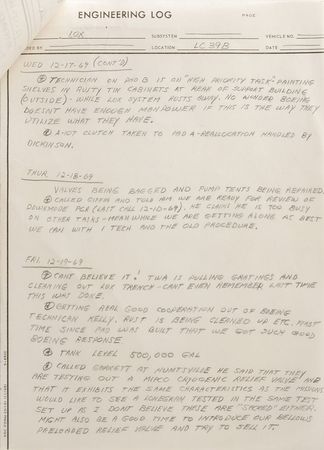 ENGINEERING LOG
PAGE
LOX
SUBSYSTEM
VEHICLE NO.
ED BY
LOCATION LC 39B
DATE
WED 12-17-69 (CONT'D)
TECHNICIAN ON PAD B IS ON "HIGH PRIORITY TASK" PAINTING
SHELVES IN RUSTY TIN CABINETS AT REAR OF SUPPORT BUILDING
(OUTSIDE) - WHILE LOX SYSTEM RUSTS AWAY. NO WONDER BOEING
DOESN'T HAVE ENOUGH MANPOWER IF THIS IS THE WAY THEY
UTILIZE WHAT THEY HAVE.
CLUTCH TAKEN TO PAD A - REALLOCATION HANDLED BY
DICKINSON.
THUR 12-18-69
VALVES BEING BAGGED AND PUMP TENTS BEING REPAIRED.
CALLED AND TOLD HIM WE ARE READY FOR REVIEW OF
PCR (LAST CALL 12-10-69). HE CLAIMS HE IS TOO BUSY
ON OTHER TASKS - MEANWHILE WE ARE GETTING ALONG AS BEST
WE CAN WITH 1 TECH AND THE OLD PROCEDURE.
FRI. 12-19-69
CAN'T BELIEVE IT! TWA IS PULLING GRATINGS AND
CLEANING OUT LOX TRENCH - CAN'T EVEN REMEMBER LAST TIME
THIS WAS DONE.
GETTING REAL GOOD COOPERATION OUT OF BOEING
TECHNICIAN KELLY. RUST IS BEING CLEANED UP ETC. FIRST
TIME SINCE PAD WAS BUILT THAT WE GOT SUCH GOOD
BOEING RESPONSE.
TANK LEVEL 500,000 GAL
CALLED GARRETT AT HUNTSVILLE HE SAID THEY
ARE TESTING OUT A CRYOGENIC RELIEF VALVE AND
THAT IT EXHIBITS THE SAME CHARACTERISTICS AS THE
WOULD LIKE TO SEE A LONERGAN TESTED IN THE SAME TEST
SET UP AS I DON'T BELIEVE THESE ARE EITHER.
MIGHT ALSO BE A GOOD TIME TO INTRODUCE OUR BELLOWS
PRELOADED RELIEF VALVE AND TRY TO SELL IT.